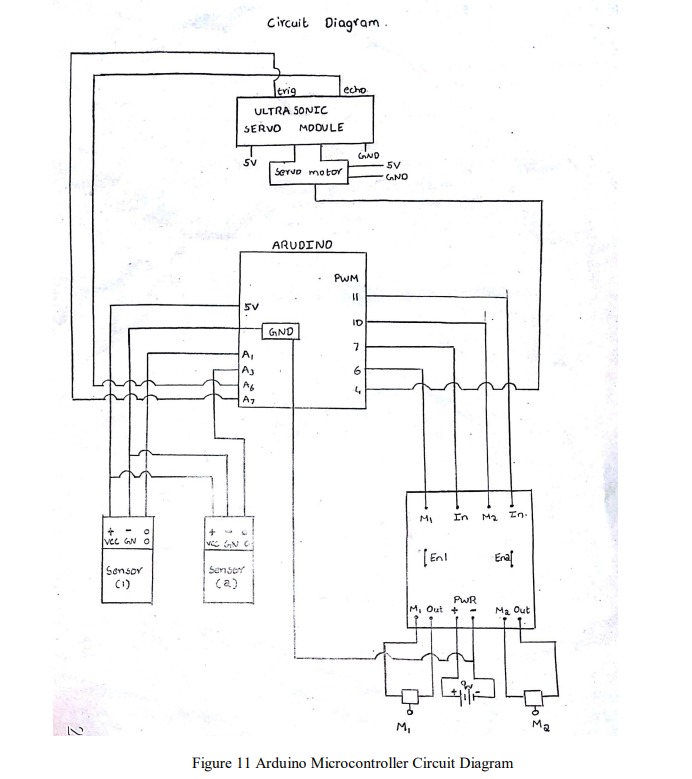 Circuit Diagram.
trig echo
ULTRA SONIC
SERVO MODULE
5V GND
Servo motor 5V
GND
ARUDINO
PWM
5V 11
GND 10
A1 7
A3 6
A6
A7 4
M1 In M2 In.
+ - o
VCC GN O
Sensor
(1)
+ - o
VCC GN
Sensor
(2)
En1 En2
PWR
M1 Out + - M2 Out
9v
+ -
M1 M2
2
Figure 11 Arduino Microcontroller Circuit Diagram